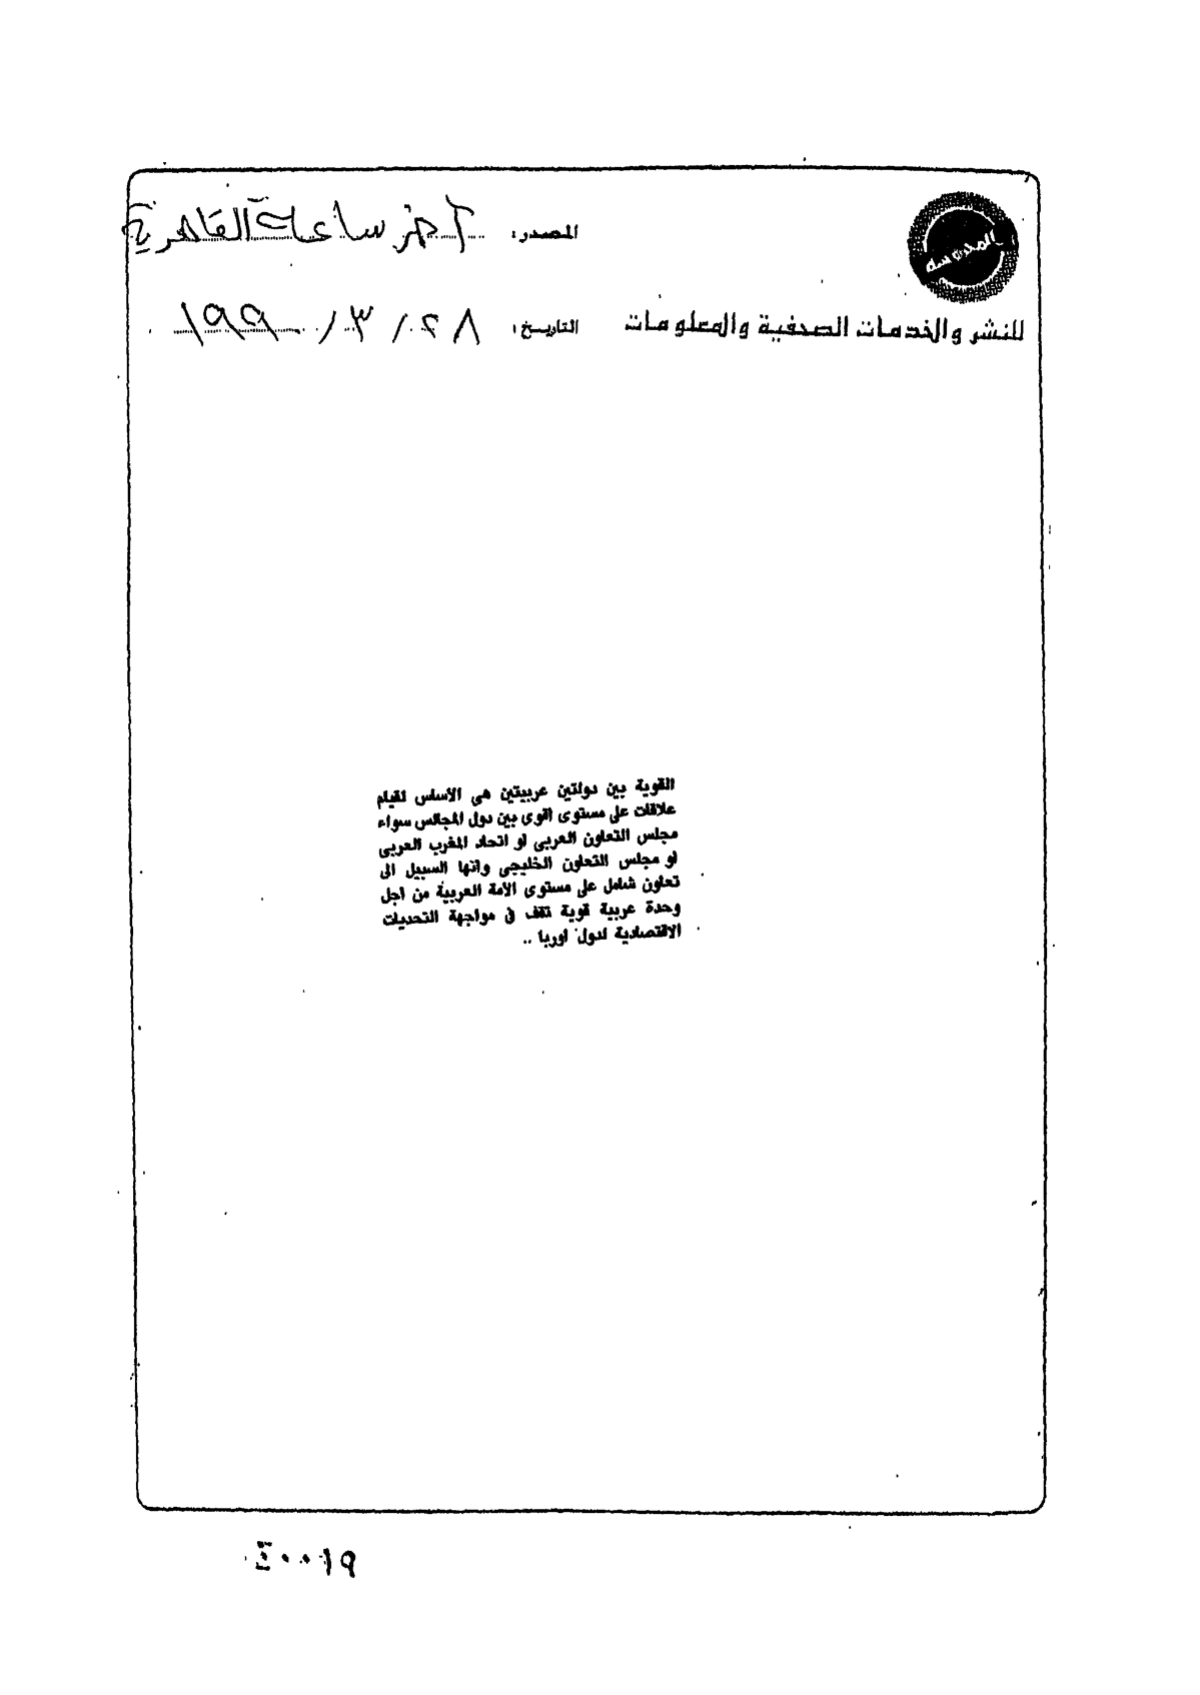 المحروسة
المصدر: آخر ساعة القاهرية
للنشر والخدمات الصحفية والمعلومات
التاريخ: ٢٨ / ٣ / ١٩٩٠
القوية بين دولتين عربيتين هى الأساس لقيام
علاقات على مستوى اقوى بين دول المجالس سواء
مجلس التعاون العربى او اتحاد المغرب العربى
او مجلس التعاون الخليجى وانها السبيل الى
تعاون شامل على مستوى الأمة العربية من اجل
وحدة عربية قوية تقف فى مواجهة التحديات
الاقتصادية لدول اوربا ..